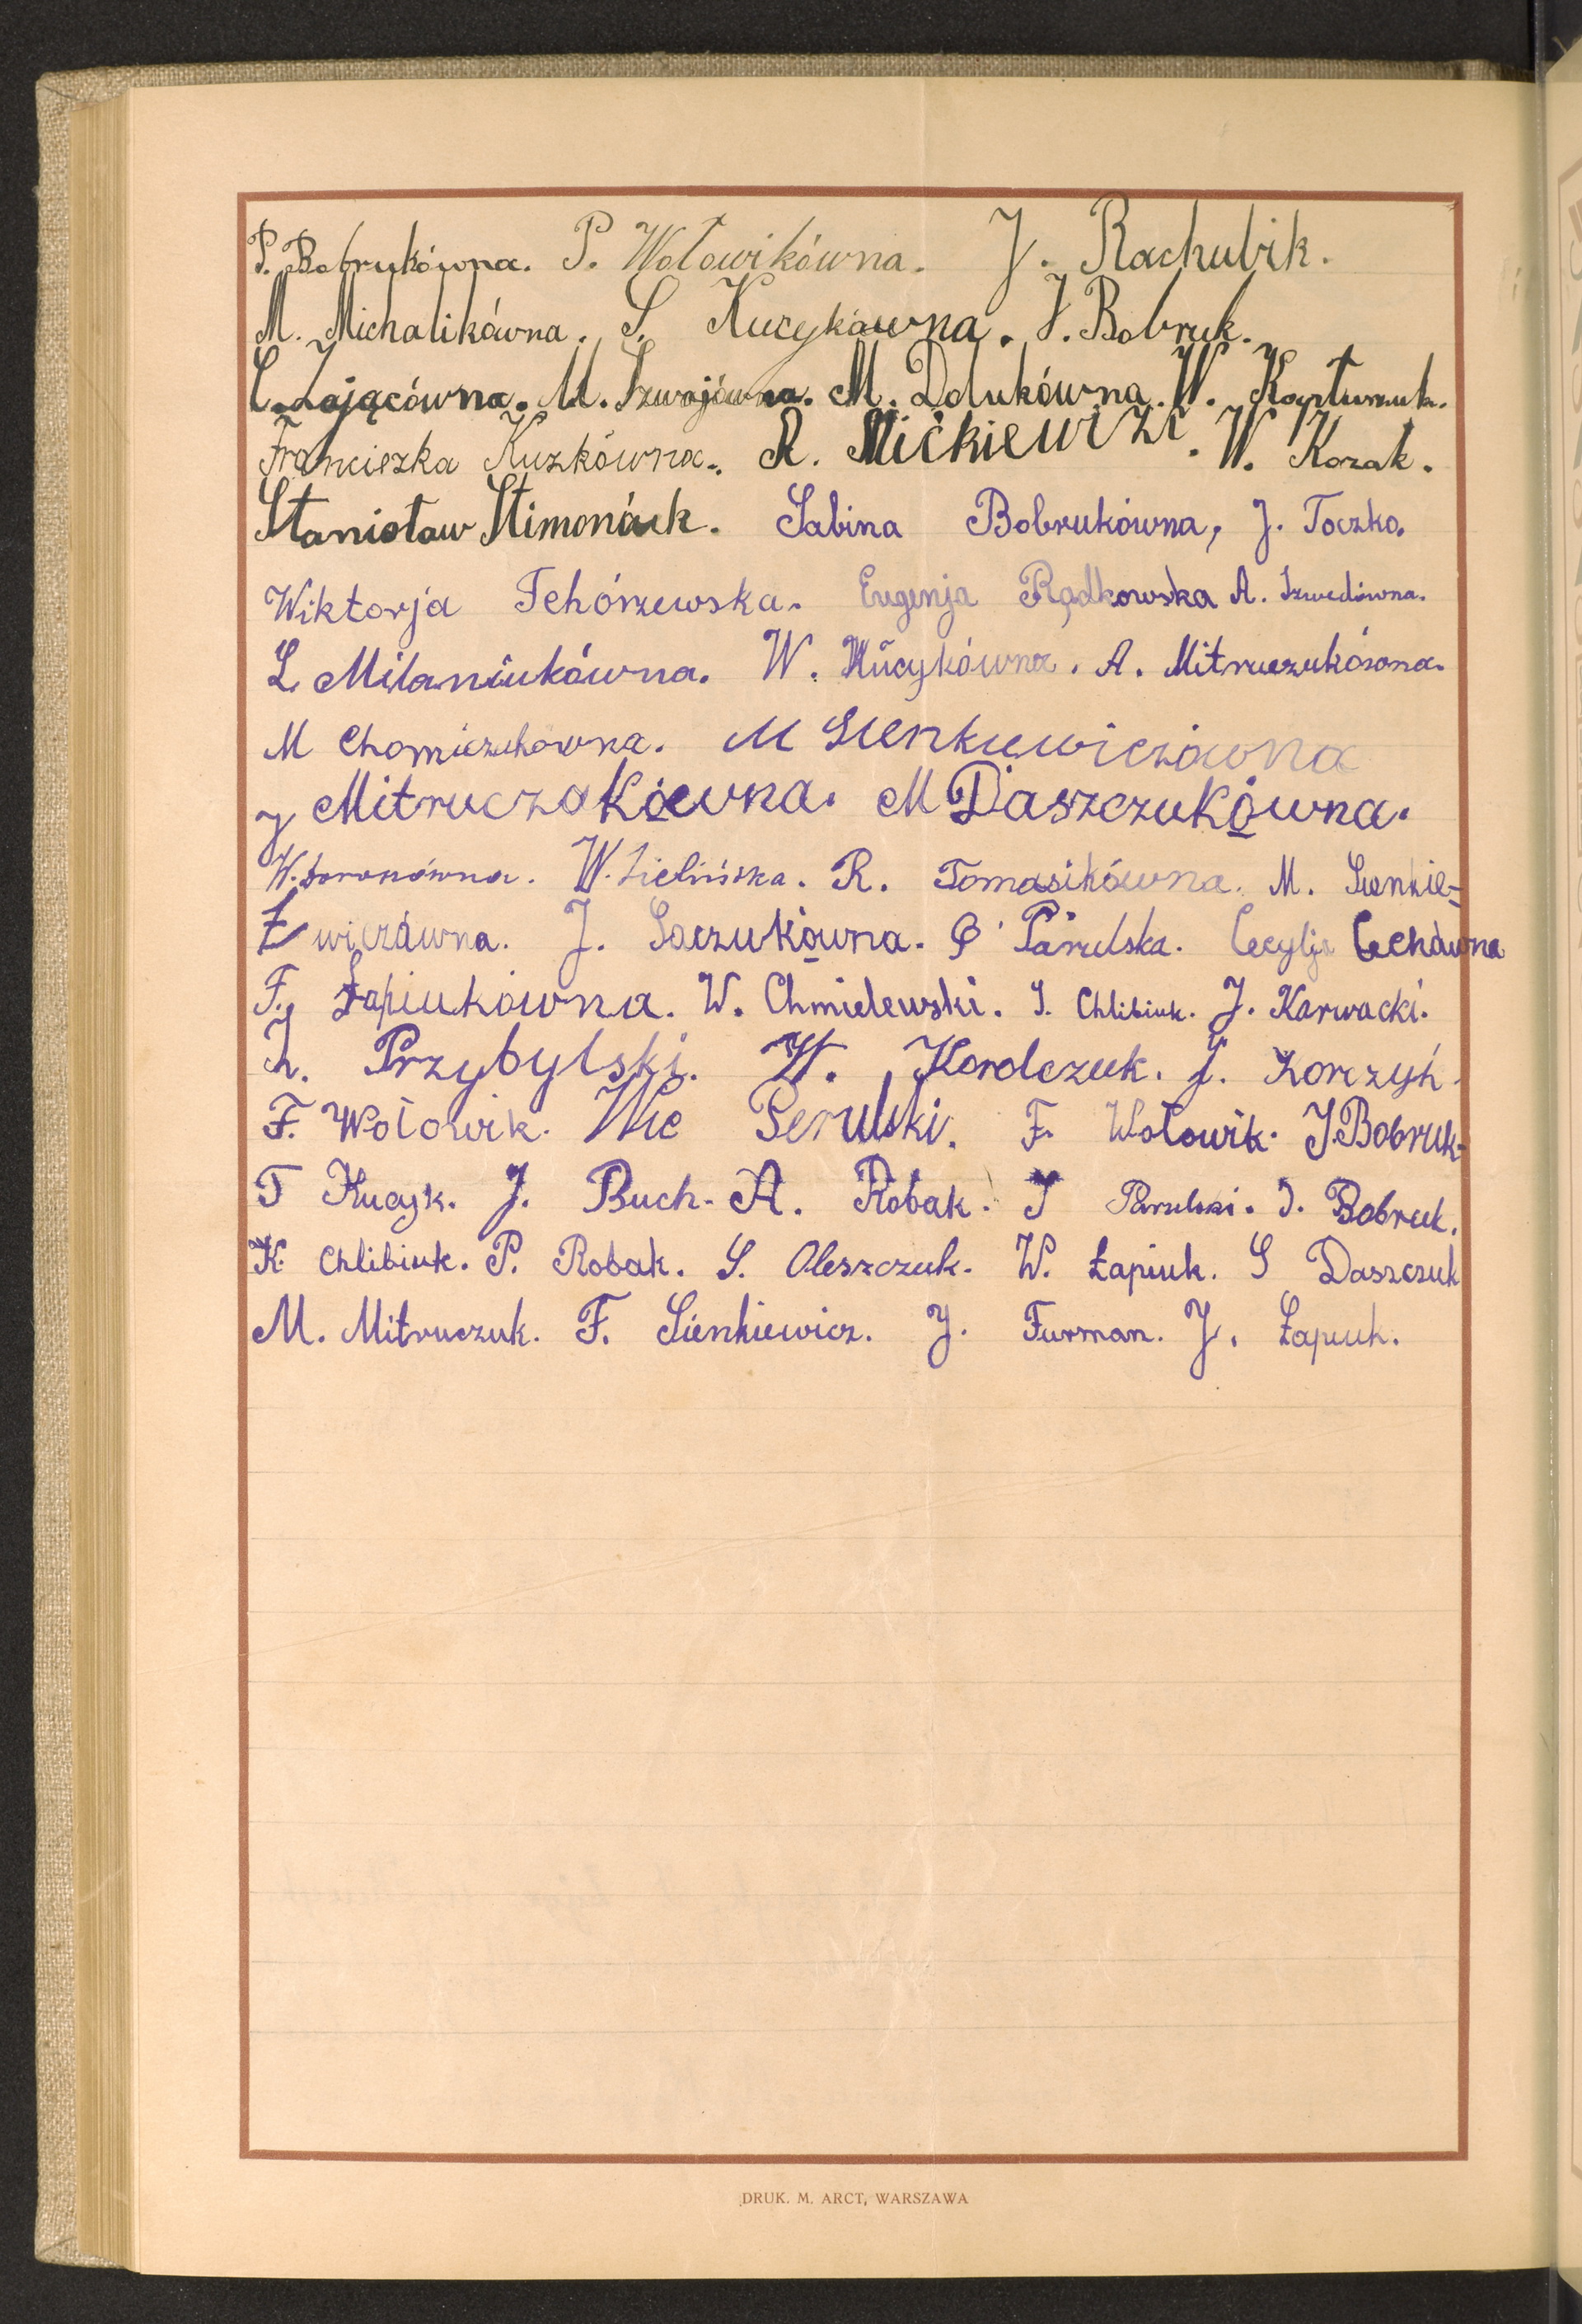 P. Bobrukówna. P. Wołowikówna. J. Rachubik.
M. Michalikówna. S. Kucykówna. J. Bobruk.
C. Zającówna. M. Szwajówna. M. Ddukówna. W.
Franciszka Kuzkówna. R. Mickiewizc. W. Kozak.
Stanisław Stimoniuk. Sabina Bobrukówna, J. Toczko.
Wiktorja Tchórzewska. Eugenja Rądkowska A. Szwedówna.
L. Milaniukówna. W. Kucykówna. A. Mitruczukówna.
M Chomiczukowna. M Sienkiewiczówna
J Mitruczakówna. M Daszczukówna.
W. W. Zielińska. R. Tomasikówna. M. Sienkie-
wiczówna. J. Saczukówna. Parulska. Cecylja Cechówna
F. Łapiukówna. W. Chmielewski. J. Chlibiuk. J. Karwacki.
Przybylski. W. Kordczuk. J. Korczyk.
F. Wołowik. Wic Perulski. F. Wołowik. J. Bobruk.
T Kucyk. J. Buch. A. Robak. J Parulski. J. Bobruk.
K. Chlibiuk. P. Robak. S. Oleszczuk. W. Łapiuk. S Daszczuk
M. Mitruczuk. F. Sienkiewicz. J. Furman. J. Łapiuk.
DRUK. M. ARCT, WARSZAWA